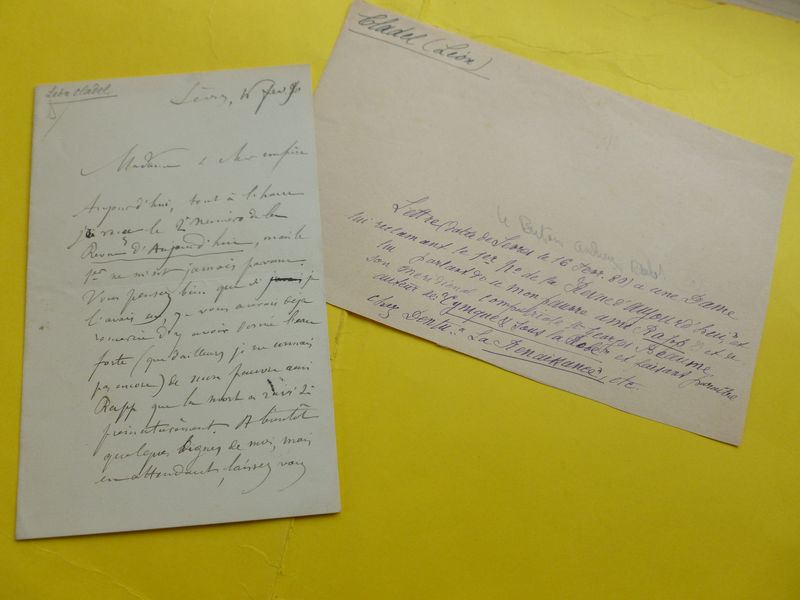 Léon Cladel
Sèvres, 16 Fev 90
Madame & cher confrère
Aujourd'hui, tout à l'heure
j'ai reçu le 2e numéro de la
Revue d'Aujourd'hui, mais le
1er ne m'est jamais parvenu.
Vous pensez bien que si javais je
l'avais eu, je vous aurais déjà
remercié d'y avoir donné l'eau
forte (que d'ailleurs je ne connais
pas encore) de mon pauvre ami
Rapp que la mort a ravi si
prématurément. A bientôt
quelques lignes de moi, mais
en attendant, laissez-vous
Cladel (Léon)
Lettre datée de Sèvres le 16 Fev. 90 à une Dame
lui réclamant le 1er No de la Revue d'Aujourd'hui, et
lui parlant de mon pauvre ami Rapp et
son compatriote Georges Beaume,
auteur de et faisant paraître
chez Dentu: La Renaissance, etc.